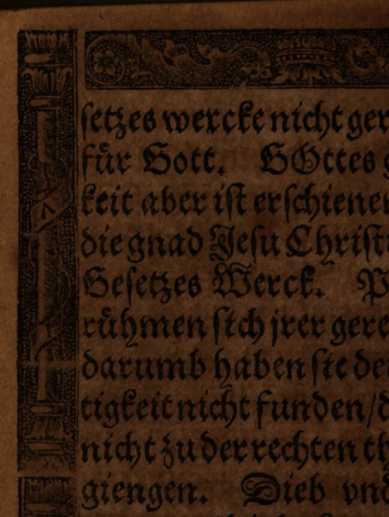 setzes wercke nicht ger
für Gott. GOttes
keit aber ist erschienen
die gnad Jesu Christi
Gesetzes Werck. P
rühmen sich jrer gere
darumb haben sie de
tigkeit nicht funden/d
nicht zu der rechten th
giengen. Dieb vnd